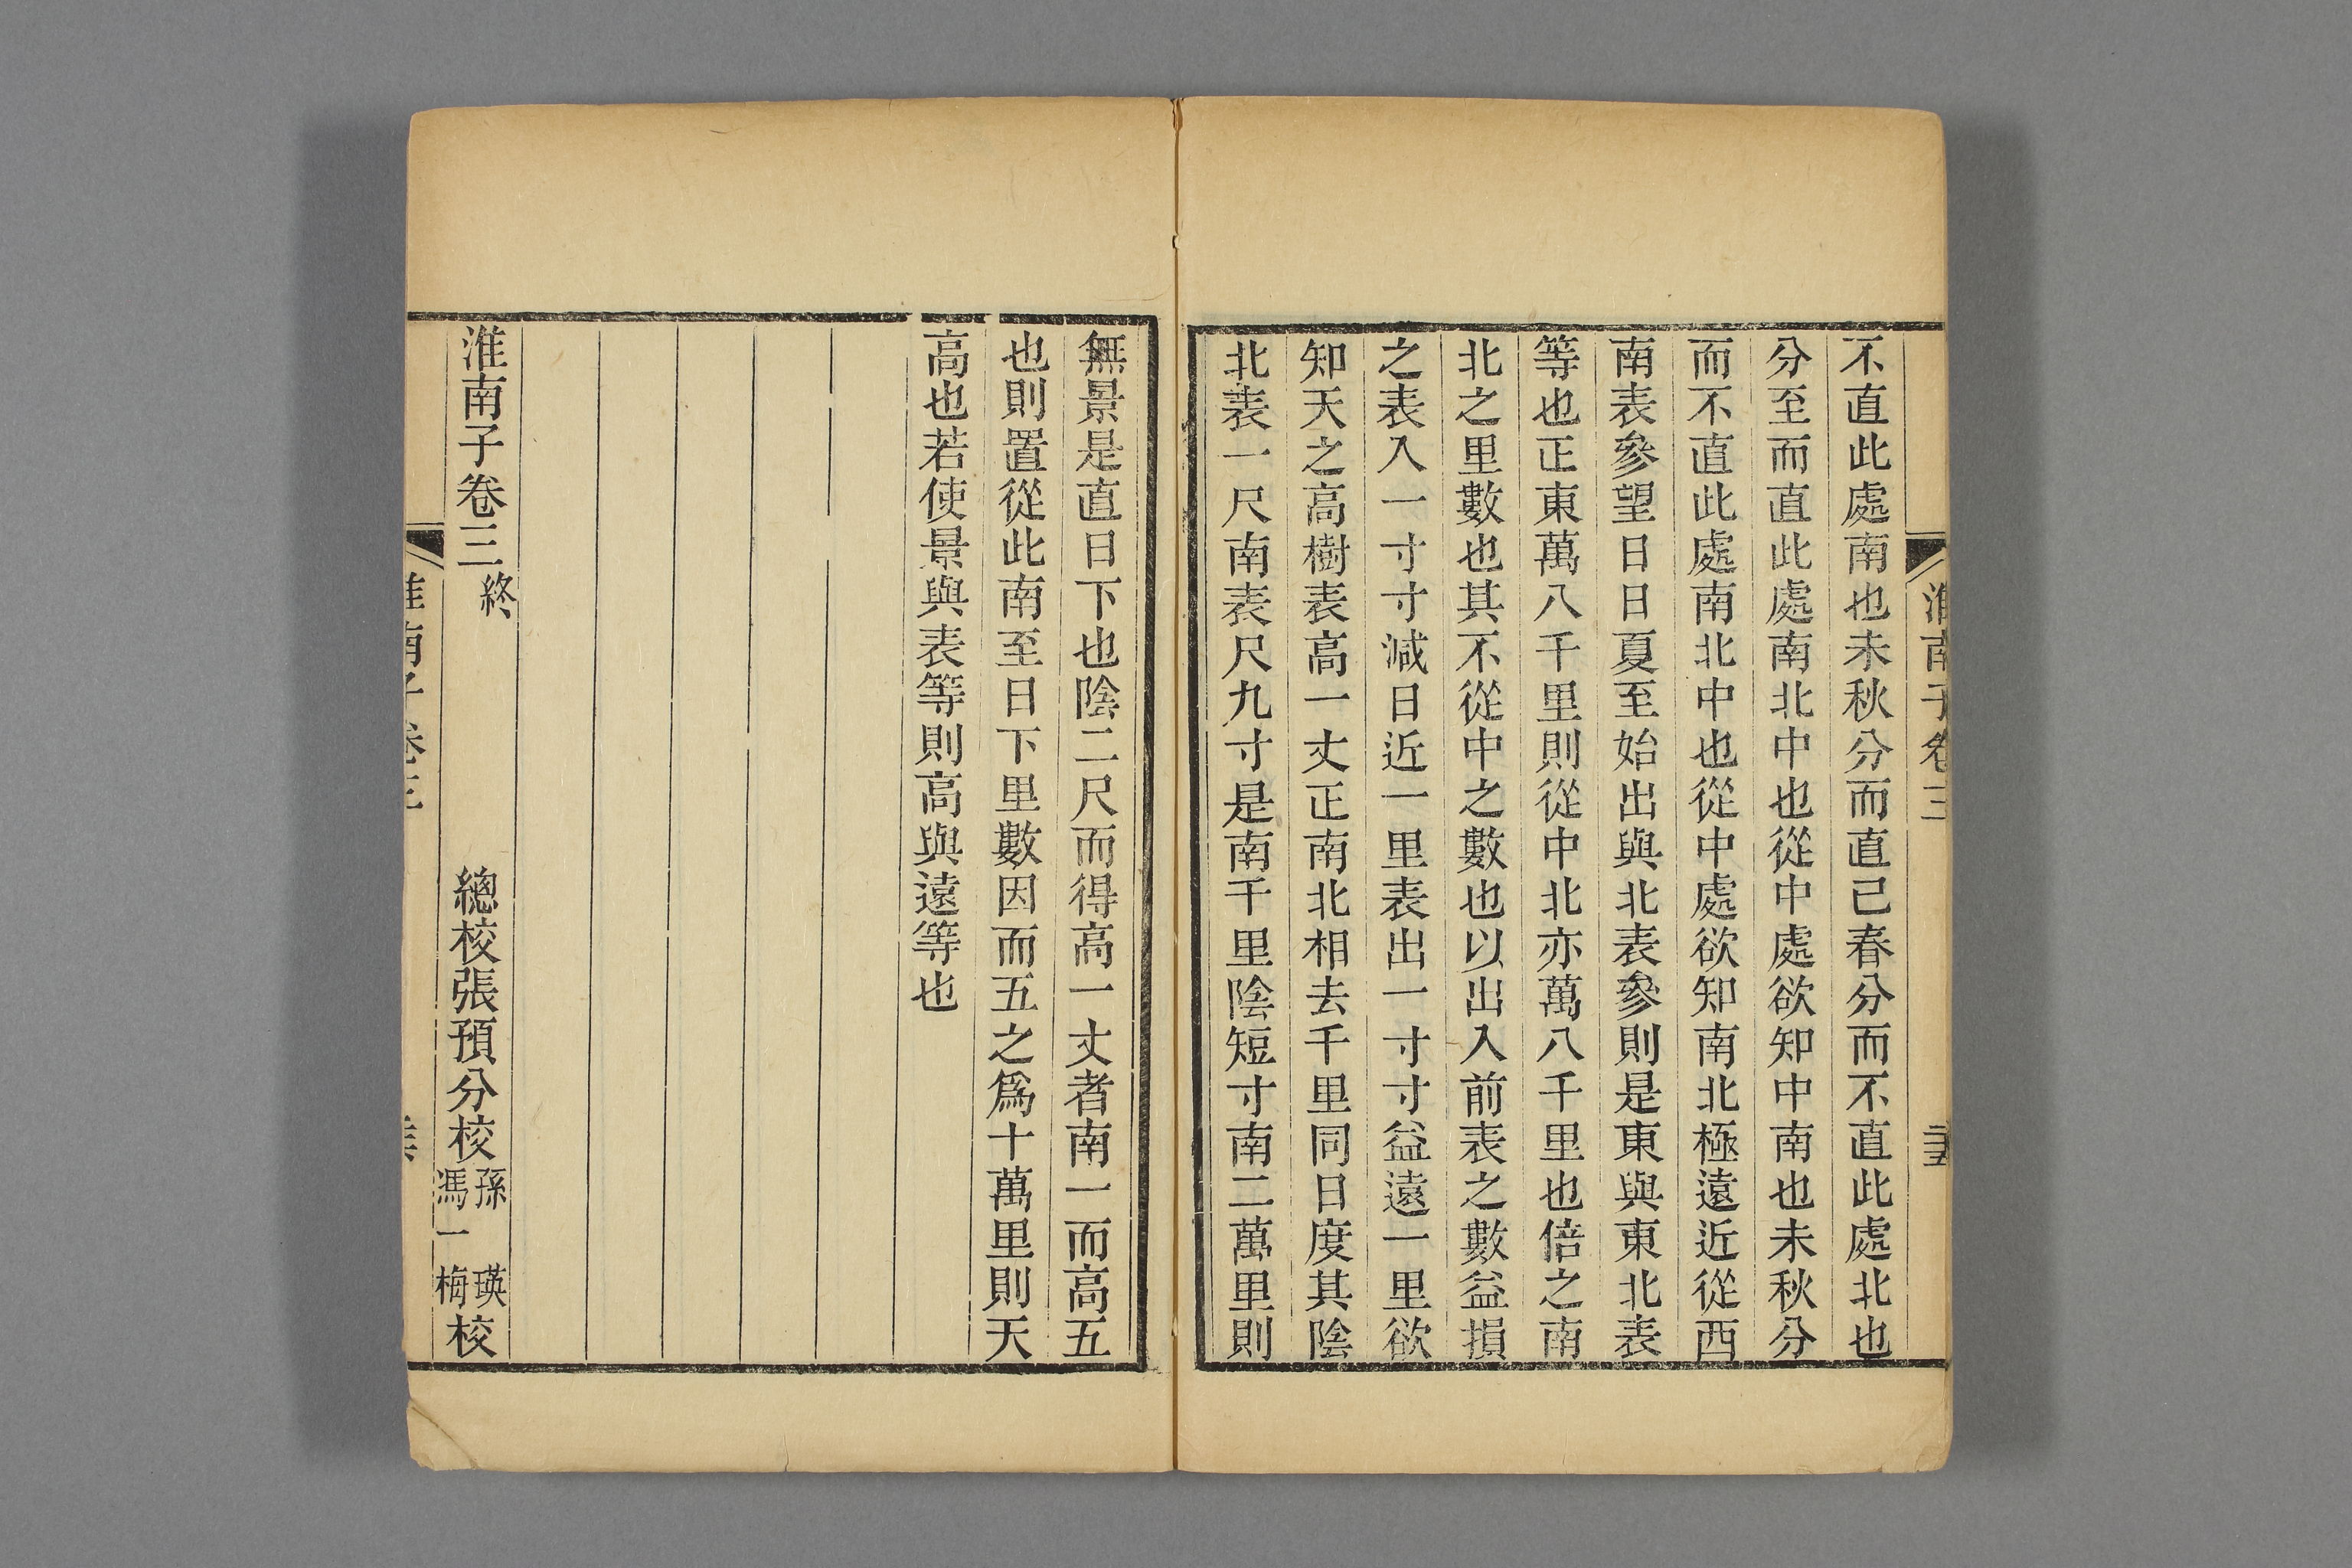 淮南子卷三
不直此處南也未秋分而直已春分而不直此處北也
分至而直此處南北中也從中處欲知中南也未秋分
而不直此處南北中也從中處欲知南北極遠近從西
南表參望日日夏至始出與北表參則是東與東北表
等也正東萬八千里則從中北亦萬八千里也倍之南
北之里數也其不從中之數也以出入前表之數益損
之表入一寸寸減日近一里表出一寸寸益遠一里欲
知天之高樹表高一丈正南北相去千里同日度其陰
北表一尺南表尺九寸是南千里陰短寸南二萬里則
無景是直日下也陰二尺而得高一丈者南一而高五
也則置從此南至日下里數因而五之爲十萬里則天
高也若使景與表等則高與遠等也
淮南子卷三終
總校張預分校孫瑛馮一梅校
淮南子卷三